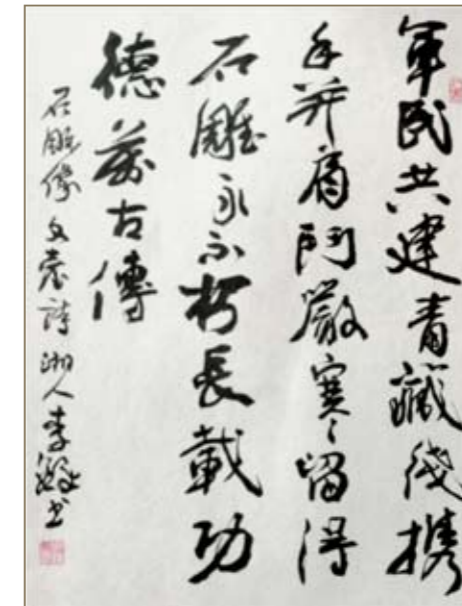 軍民共建青藏线携
手并肩鬥嚴寒留得
石雕永不朽長載功
德萬古傳
石雕像文詩湘人李书